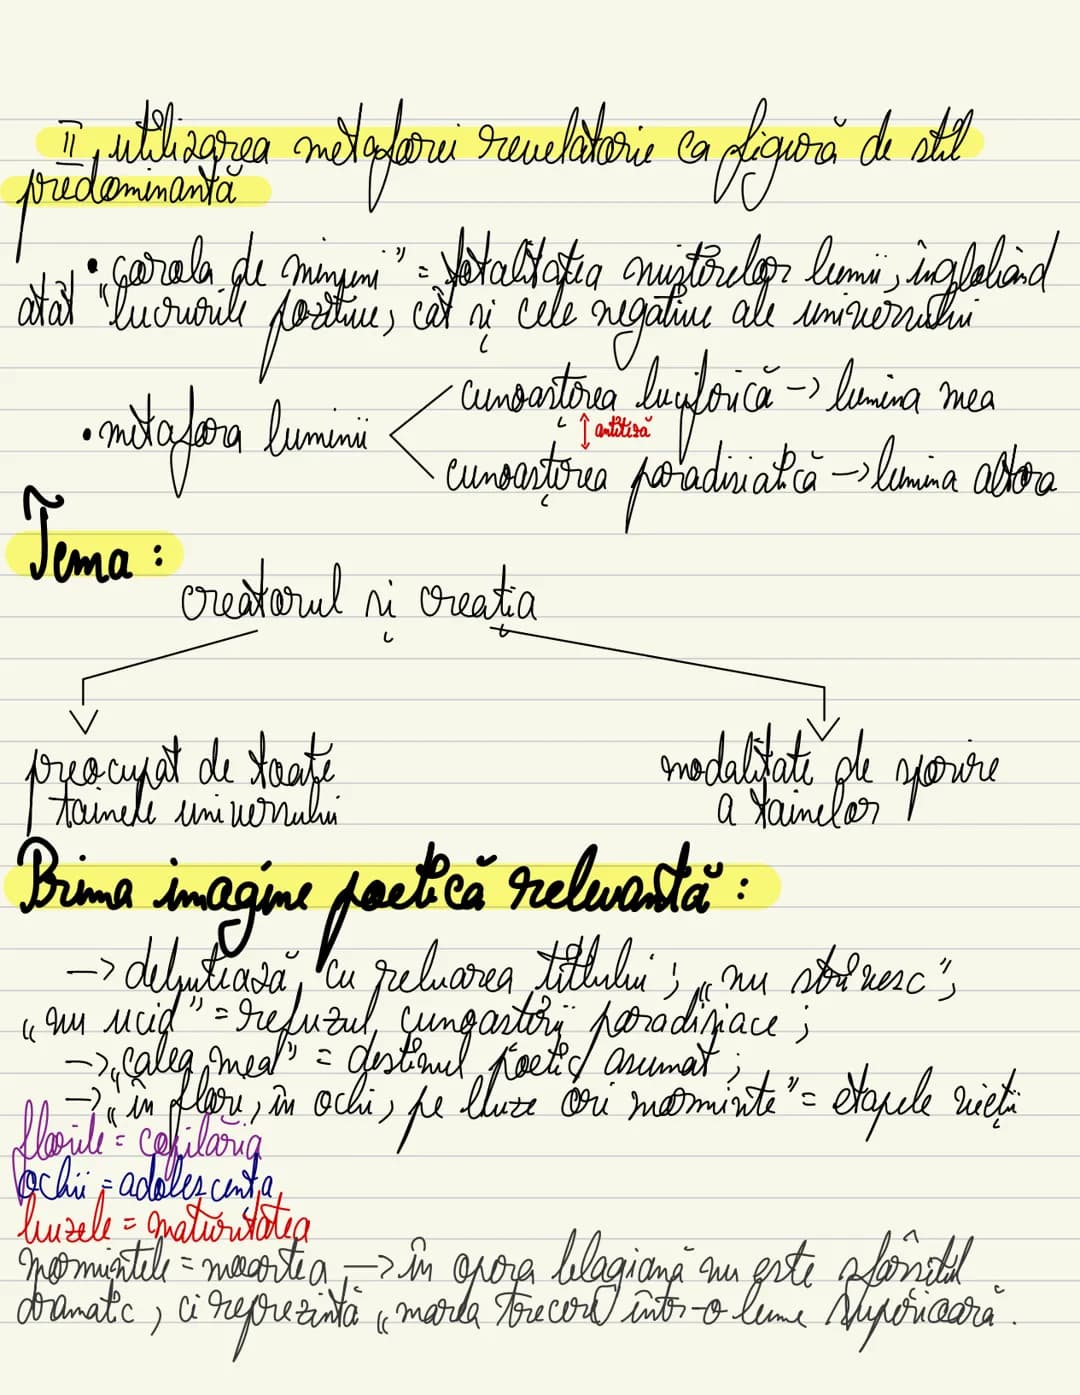 II, utilizarea metaforei revelatorie ca figură de stil
predominantă
• "corola de minuni" = totalitatea misterelor lumii, înglobând
atât lucrurile pozitive, cât și cele negative ale universului
• metafora luminii
cunoașterea luciferică -> lumina mea
↕ antiteză
cunoașterea paradisiatică -> lumina altora
Tema :
creatorul și creația
preocupat de toate
tainele universului
modalitate de sporire
a tainelor
Prima imagine poetică relevantă :
-> debutează cu reluarea titlului ; „nu strivesc";
„nu ucid" = refuzul cunoașterii paradiziace ;
-> „calea mea" = destinul poetic asumat ;
-> „în flori, în ochi, pe buze ori morminte" = etapele vieții
florile = copilăria
ochii = adolescența
buzele = maturitatea
mormintele = moartea -> în opera blagiană nu este sfârșitul
dramatic, ci reprezintă „marea trecere" într-o lume superioară.